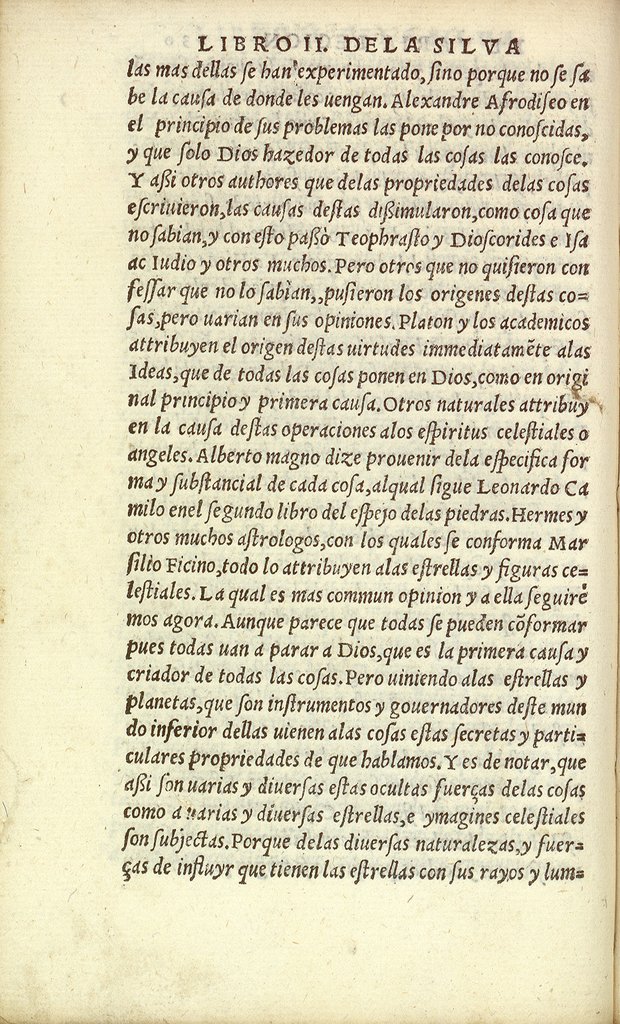 LIBRO II. DE LA SILVA
las mas dellas se han experimentado, sino porque no se sa
be la causa de donde les uengan. Alexandre Afrodiseo en
el principio de sus problemas las pone por no conoscidas,
y que solo Dios hazedor de todas las cosas las conosce.
Y aßi otros authores que delas propriedades delas cosas
escriuieron, las causas destas dißimularon, como cosa que
no sabian, y con esto paßò Teophrasto y Dioscorides e Isa
ac Iudio y otros muchos. Pero otros que no quisieron con
fessar que no lo sabian,, pusieron los origenes destas co=
sas, pero uarian en sus opiniones. Platon y los academicos
attribuyen el origen destas uirtudes immediatamẽte alas
Ideas, que de todas las cosas ponen en Dios, como en origi
nal principio y primera causa. Otros naturales attribuy
en la causa destas operaciones alos espiritus celestiales o
angeles. Alberto magno dize prouenir dela especifica for
ma y substancial de cada cosa, alqual sigue Leonardo Ca
milo enel segundo libro del espejo delas piedras. Hermes y
otros muchos astrologos, con los quales se conforma Mar
silio Ficino, todo lo attribuyen alas estrellas y figuras ce=
lestiales. La qual es mas commun opinion y a ella seguirẽ
mos agora. Aunque parece que todas se pueden cõformar
pues todas uan a parar a Dios, que es la primera causa y
criador de todas las cosas. Pero uiniendo alas estrellas y
planetas, que son instrumentos y gouernadores deste mun
do inferior dellas uienen alas cosas estas secretas y parti=
culares propriedades de que hablamos. Y es de notar, que
aßi son uarias y diuersas estas ocultas fuerças delas cosas
como a uarias y diuersas estrellas, e ymagines celestiales
son subjectas. Porque delas diuersas naturalezas, y fuer=
ças de influyr que tienen las estrellas con sus rayos y lum=